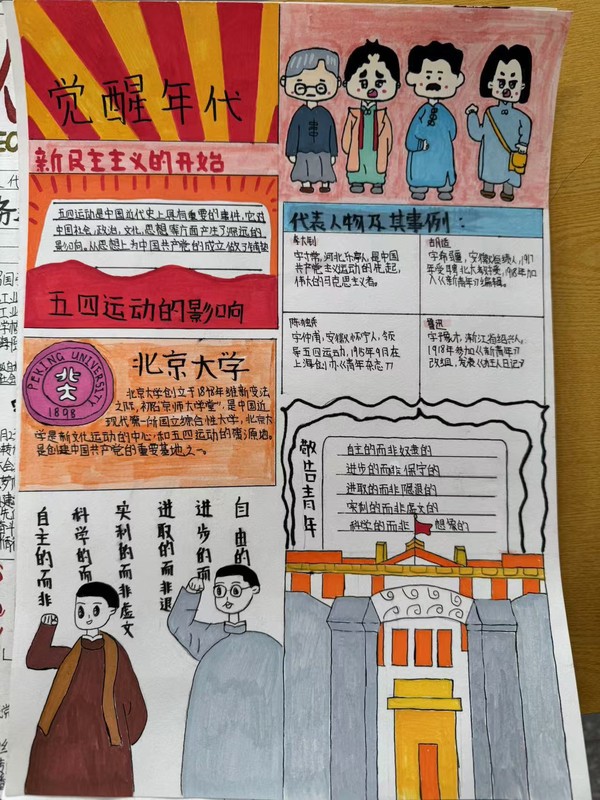 觉醒年代
新民主主义的开始
五四运动是中国近代史上具有重要的事件，它对
中国社会、政治、文化、思想等方面产生了深远的
影响。从思想上为中国共产党的成立做了铺垫
五四运动的影响
PEKING UNIVERSITY
北大
1898
北京大学
北京大学创立于1898年维新变法
之际，初名京师大学堂"，是中国近
现代第一所国立综合性大学，北京大
学是新文化运动的中心和五四运动的策源地。
是创建中国共产党的重要基地之一。
自由的
进步的而
进取的而非退
实利的而非虚文
科学的而
自主的而非
代表人物及其事例：
李大钊
字守常，河北乐亭人，是中国
共产党主义运动的先起，
伟大的马克思主义者。
胡适
字希疆，安徽绩溪人，1917
年受聘北大教授，1918年加
入《新青年》编辑。
陈独秀
字仲甫，安徽怀宁人，领
导五四运动，1915年9月在
上海创办《青年杂志》
鲁迅
字豫才，浙江省绍兴人，
1918年参加《新青年》
改组，发表《狂人日记》
敬告青年
自主的而非奴隶的
进步的而非保守的
进取的而非隐退的
实利的而非虚文的
科学的而非 想象的